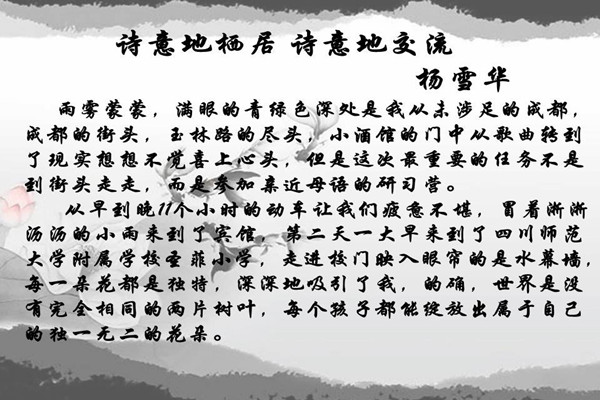 诗意地栖居 诗意地交流
杨雪华
雨雾蒙蒙，满眼的青绿色深处是我从未涉足的成都，
成都的街头，玉林路的尽头，小酒馆的门中从歌曲转到
了现实想想不觉喜上心头，但是这次最重要的任务不是
到街头走走，而是参加亲近母语的研习营。
从早到晚11个小时的动车让我们疲惫不堪，冒着淅淅
沥沥的小雨来到了宾馆，第二天一大早来到了四川师范
大学附属学校圣菲小学，走进校门映入眼帘的是水幕墙，
每一朵花都是独特，深深地吸引了我，的确，世界是没
有完全相同的两片树叶，每个孩子都能绽放出属于自己
的独一无二的花朵。